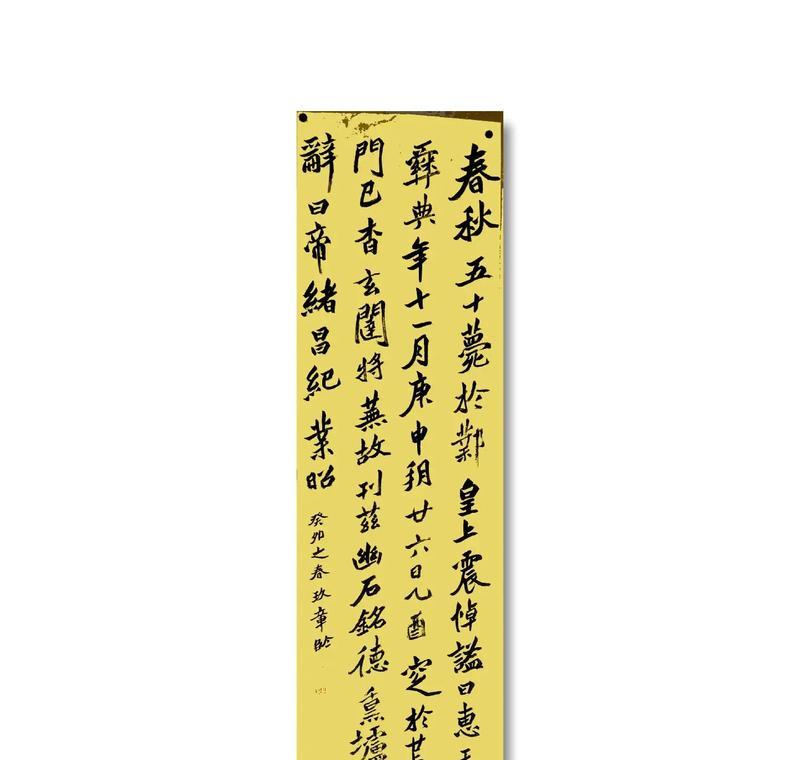 春秋五十薨於鄴皇上震悼謚曰惠王
彝典年十一月庚申朔廿六日乙酉窆於
門已杳玄闥將蕪故刊茲幽石銘德熏壚
辭曰帝緒昌紀業昭
癸卯之春玖章臨